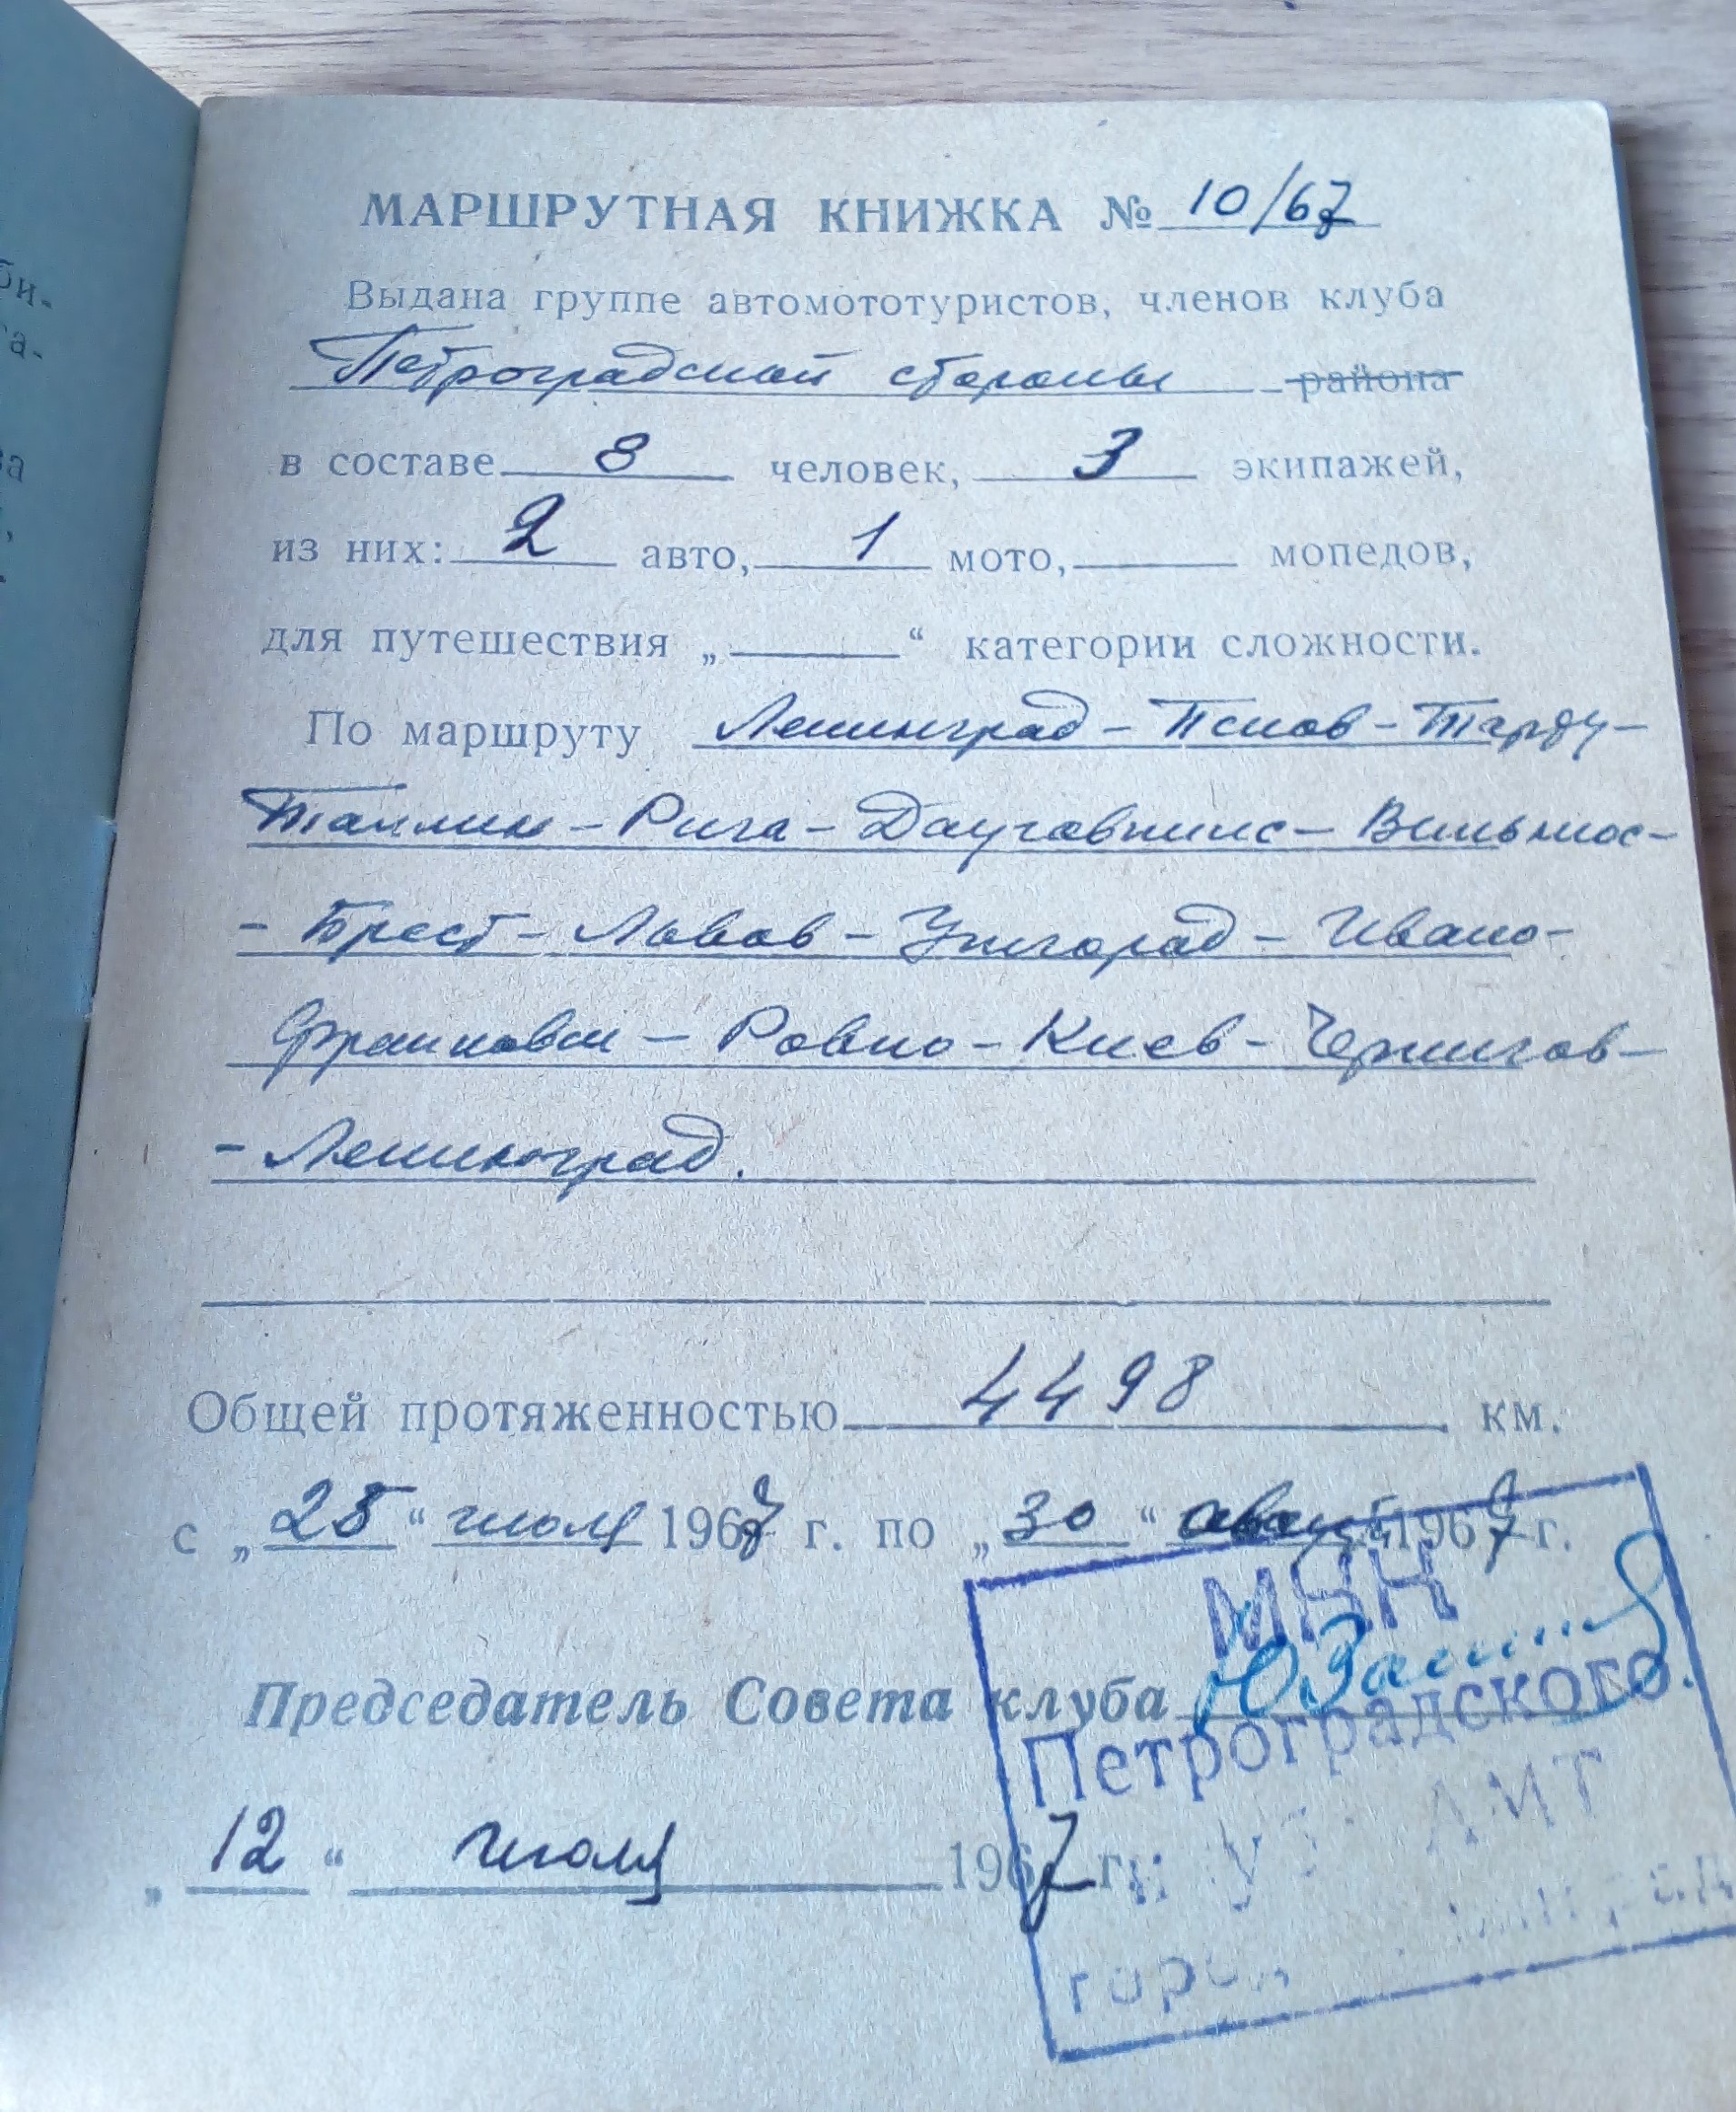 би-
га-
ва
МАРШРУТНАЯ КНИЖКА № 10/67
Выдана группе автомототуристов, членов клуба
Петроградской стороны района
в составе 8 человек, 3 экипажей,
из них: 2 авто, 1 мото, мопедов,
для путешествия „ “ категории сложности.
По маршруту Ленинград - Псков - Тарту -
Таллин - Рига - Даугавпилс - Вильнюс -
- Брест - Львов - Ужгород - Ивано-
Франковск - Ровно - Киев - Чернигов -
- Ленинград.
Общей протяженностью 4498 км.
с „25“ июля 1967 г. по „30“ август 1967 г.
МКК
Председатель Совета клуба
Петроградского
АМТ
„12“ июля 1967 г.
город